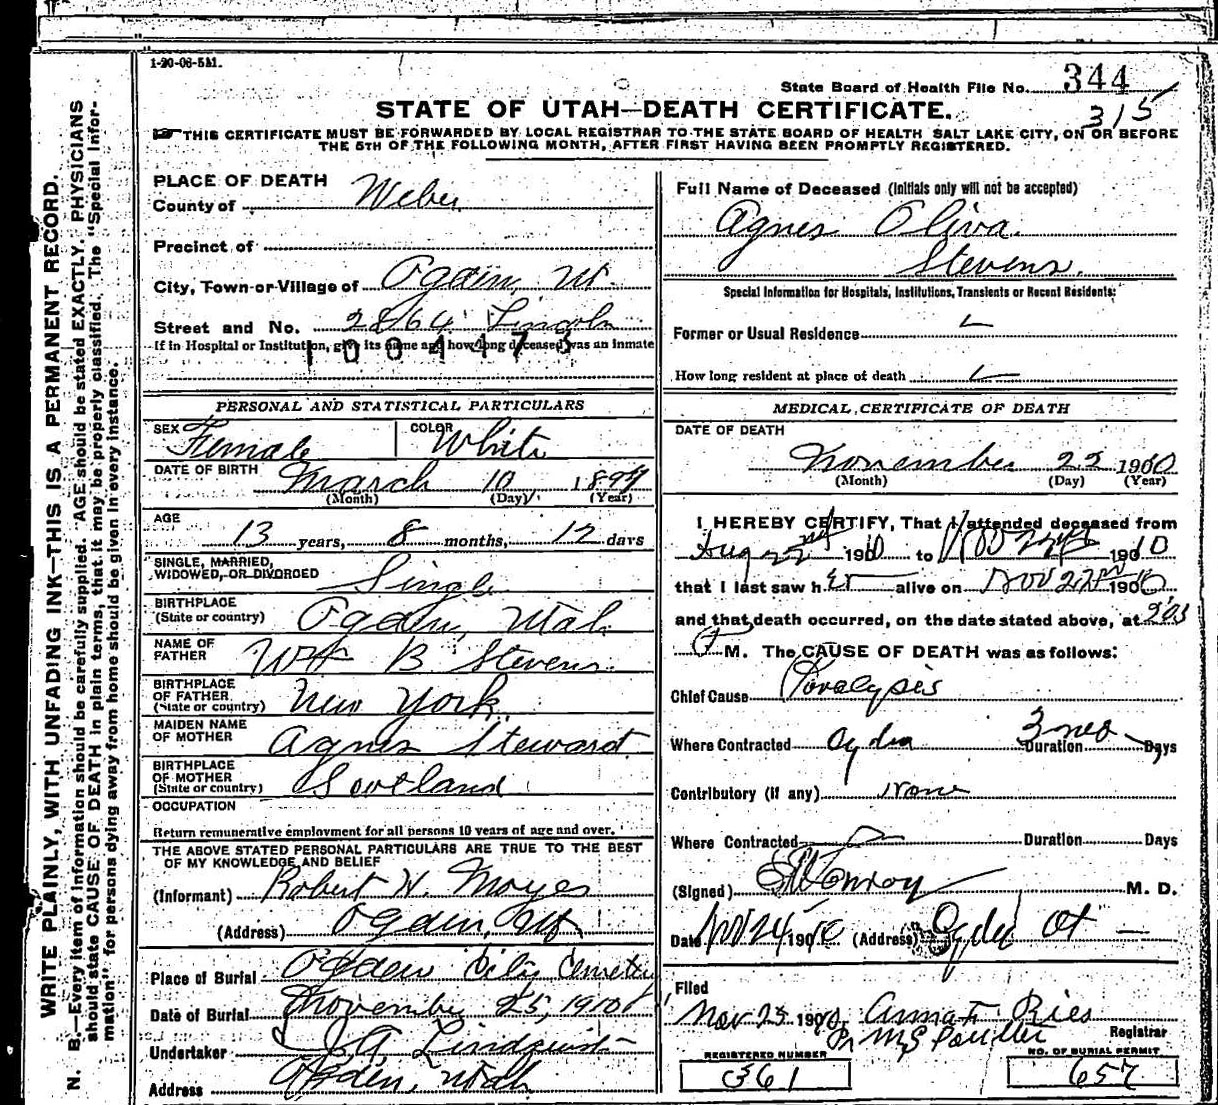 1-20-06-5M.
State Board of Health File No. 344
315
STATE OF UTAH—DEATH CERTIFICATE.
THIS CERTIFICATE MUST BE FORWARDED BY LOCAL REGISTRAR TO THE STATE BOARD OF HEALTH SALT LAKE CITY, ON OR BEFORE
THE 5TH OF THE FOLLOWING MONTH, AFTER FIRST HAVING BEEN PROMPTLY REGISTERED.
WRITE PLAINLY, WITH UNFADING INK—THIS IS A PERMANENT RECORD.
N. B.—Every item of information should be carefully supplied. AGE should be stated EXACTLY. PHYSICIANS
should state CAUSE OF DEATH in plain terms, that it may be properly classified. The "Special Infor-
mation" for persons dying away from home should be given in every instance.
PLACE OF DEATH
County of Weber
Precinct of
City, Town or Village of Ogden, Ut.
Street and No. 2864 Lincoln
If in Hospital or Institution, give its name and how long deceased was an inmate
1004473
PERSONAL AND STATISTICAL PARTICULARS
SEX Female COLOR White
DATE OF BIRTH March 10 1897
(Month) (Day) (Year)
AGE
13 years, 8 months, 12 days
SINGLE, MARRIED,
WIDOWED, OR DIVORCED Single
BIRTHPLACE
(State or country) Ogden, Utah
NAME OF
FATHER Wm B Stevens
BIRTHPLACE
OF FATHER
(State or country) New York
MAIDEN NAME
OF MOTHER Agnes Steward
BIRTHPLACE
OF MOTHER
(State or country) Scotland
OCCUPATION
Return remunerative employment for all persons 10 years of age and over.
THE ABOVE STATED PERSONAL PARTICULARS ARE TRUE TO THE BEST
OF MY KNOWLEDGE AND BELIEF
(Informant) Robert H. Moyes
(Address) Ogden, Ut
Place of Burial Ogden City Cemetery
Date of Burial November 25, 1910
Undertaker J.A. Lindquist
Address Ogden, Utah
Full Name of Deceased (Initials only will not be accepted)
Agnes Oliva
Stevens.
Special Information for Hospitals, Institutions, Transients or Recent Residents:
Former or Usual Residence
How long resident at place of death
MEDICAL CERTIFICATE OF DEATH
DATE OF DEATH
November 22 1910
(Month) (Day) (Year)
I HEREBY CERTIFY, That I attended deceased from
Aug 22nd 1910 to Nov 22nd 1910
that I last saw her alive on Nov 22nd 1910
and that death occurred, on the date stated above, at
P M. The CAUSE OF DEATH was as follows:
Chief Cause Paralysis
Where Contracted Ogden Duration 3 mos Days
Contributory (if any) None
Where Contracted Duration Days
(Signed) Conroy M. D.
Date Nov 24 1910 (Address) Ogden Ut
Filed
Nov 25 1910, Anna F. Ries
Registrar
REGISTERED NUMBER
361
NO. OF BURIAL PERMIT
657